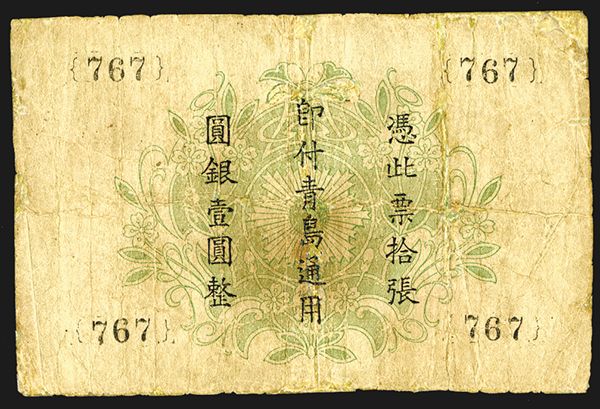 {767}
{767}
憑此票拾張
即付青島通用
圓銀壹圓整
{767}
{767}